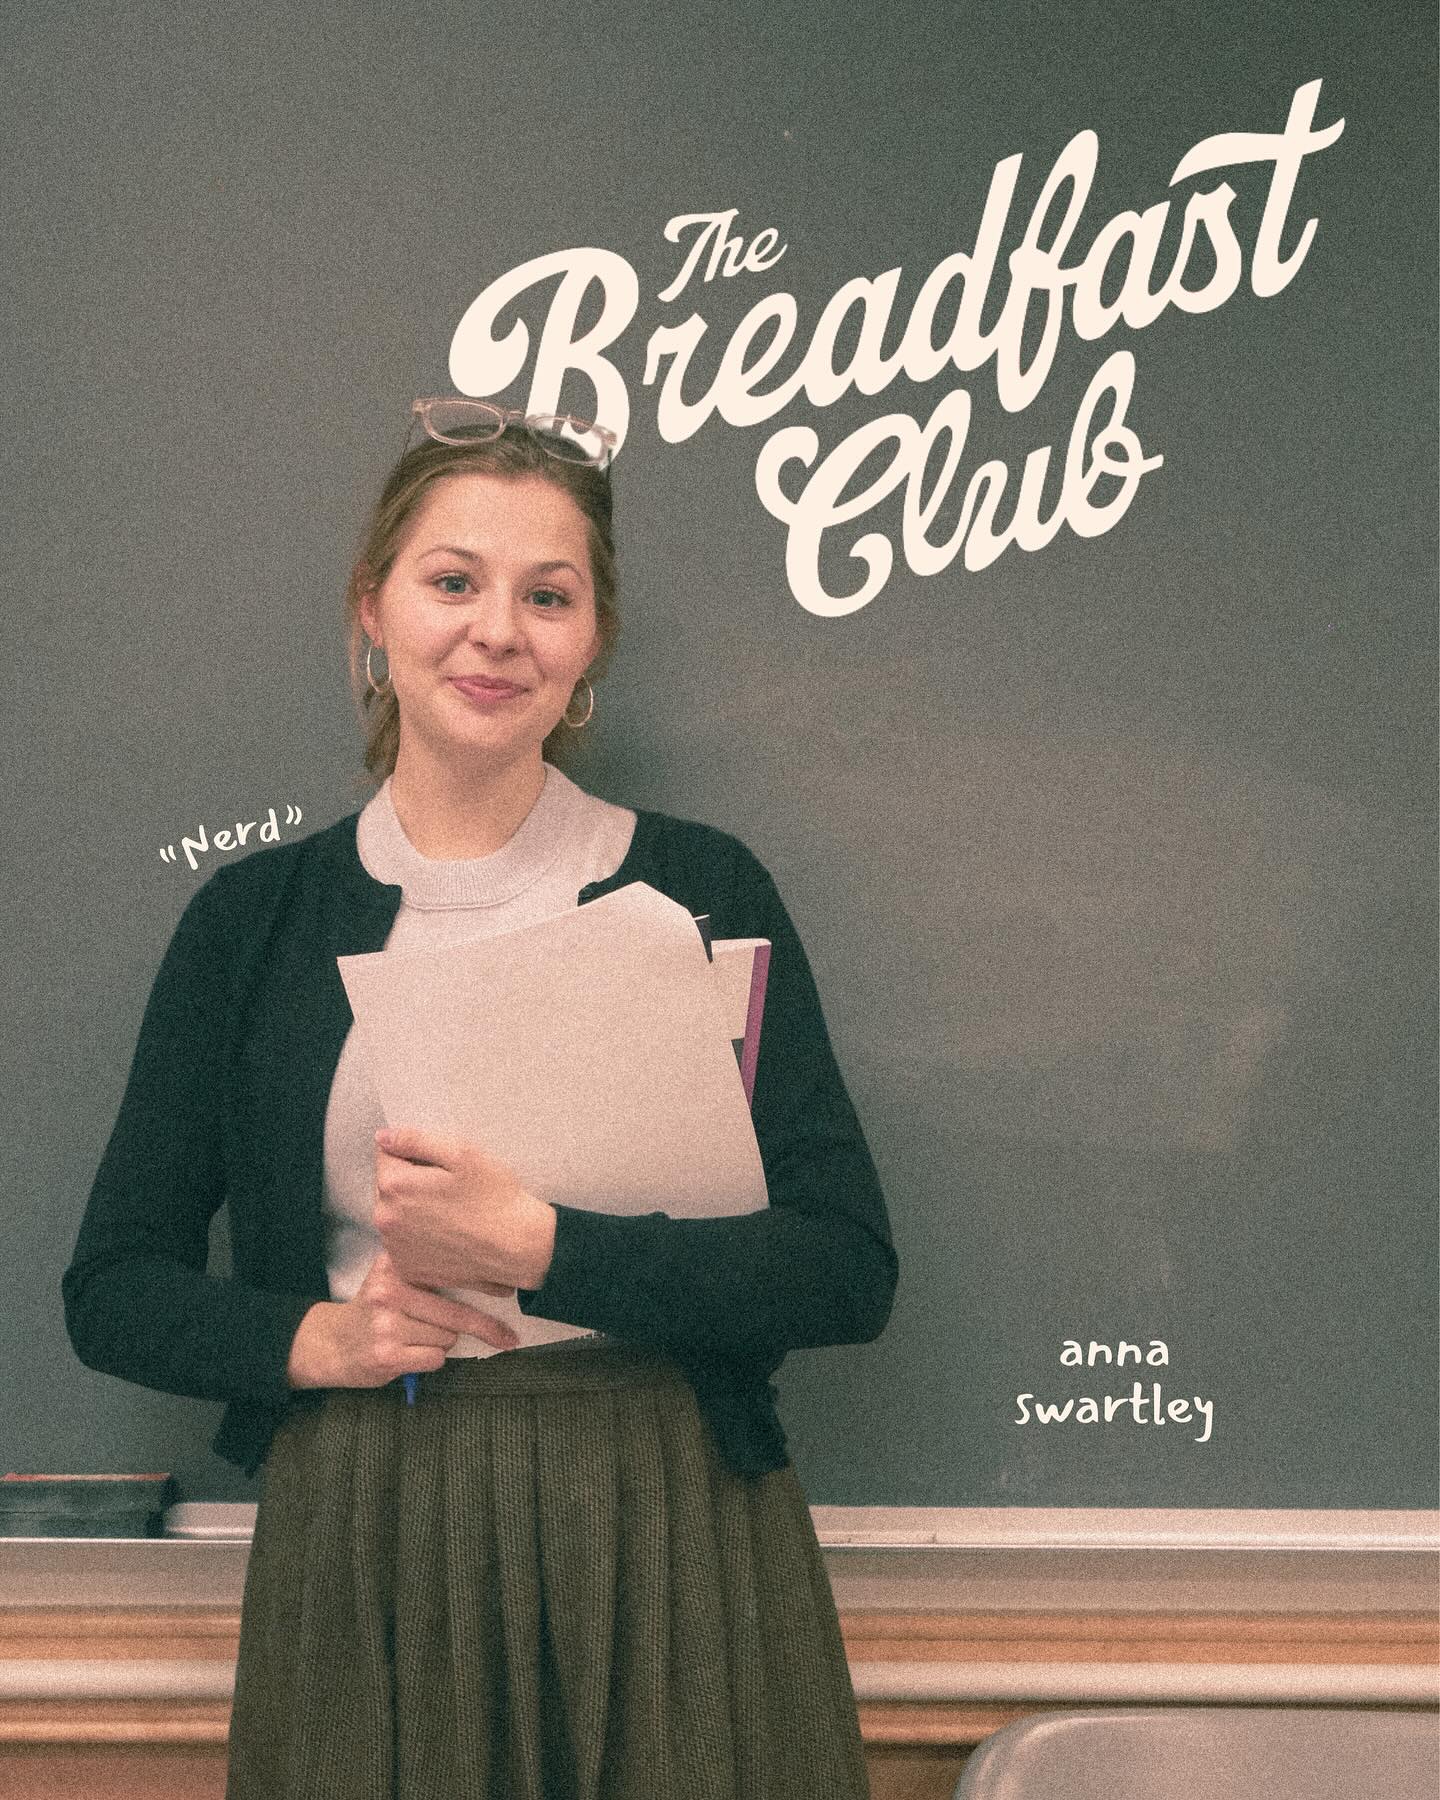 The
Breadfast
Club
“Nerd”
anna
swartley